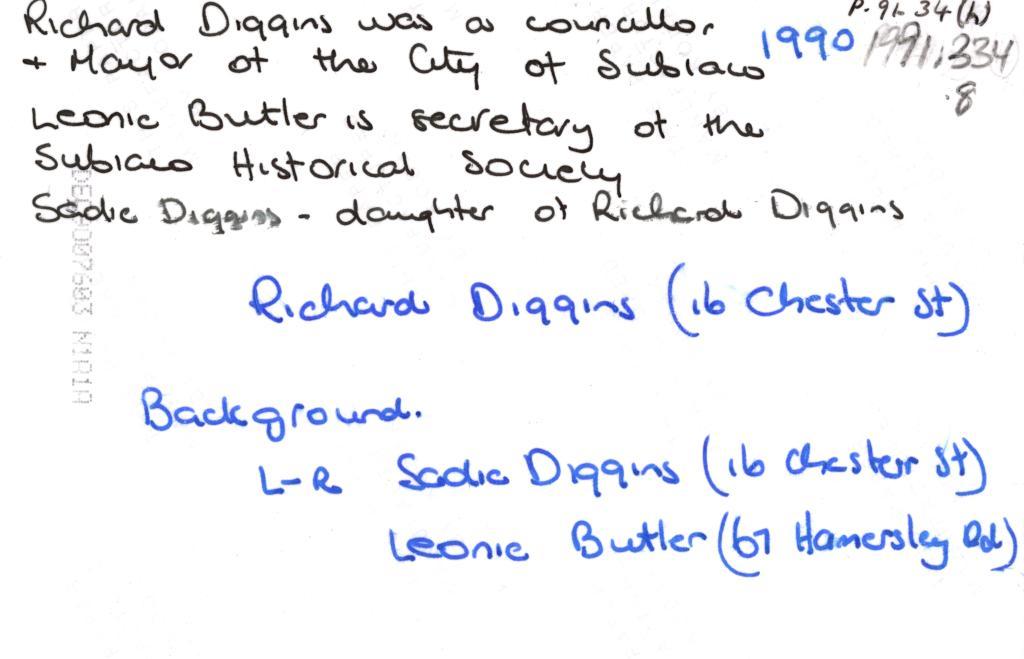 Richard Diggins was a councillor P.91.34(h)
+ Mayor of the City of Subiaco 1990 1991.334
.8
Leonie Butler is secretary of the
Subiaco Historical Society
Sadie Diggins - daughter of Richard Diggins
Richard Diggins (16 Chester St)
Background.
L-R Sadie Diggins (16 Chester St)
Leonie Butler (67 Hamersley Rd)